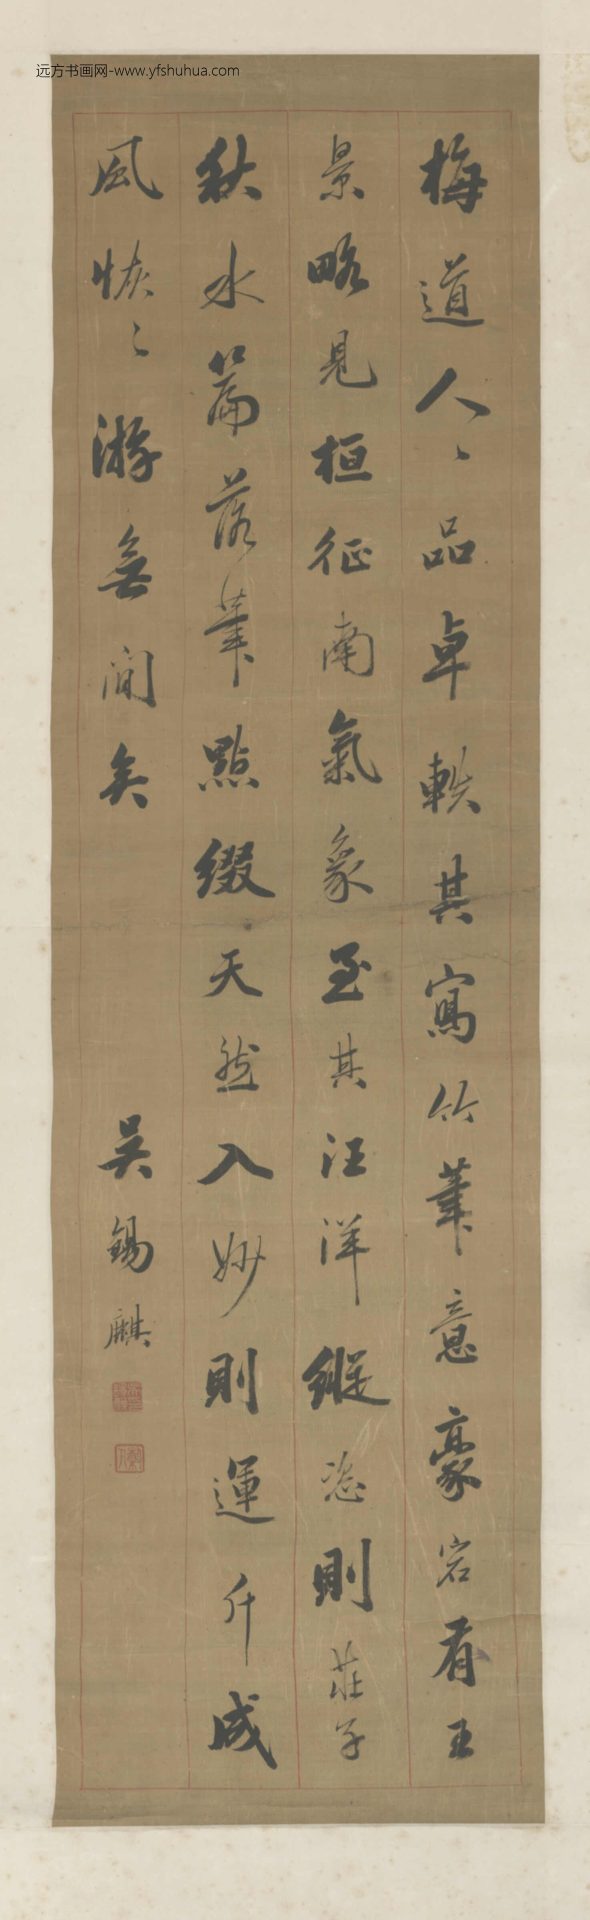 远方书画网-www.yfshuhua.com
梅道人〻品卓軼其寫竹筆意豪宕有王
景略見桓征南氣象至其汪洋縱恣則莊子
秋水篇落筆點綴天然入妙則運斤成
風恢〻游無間矣
吳錫麒